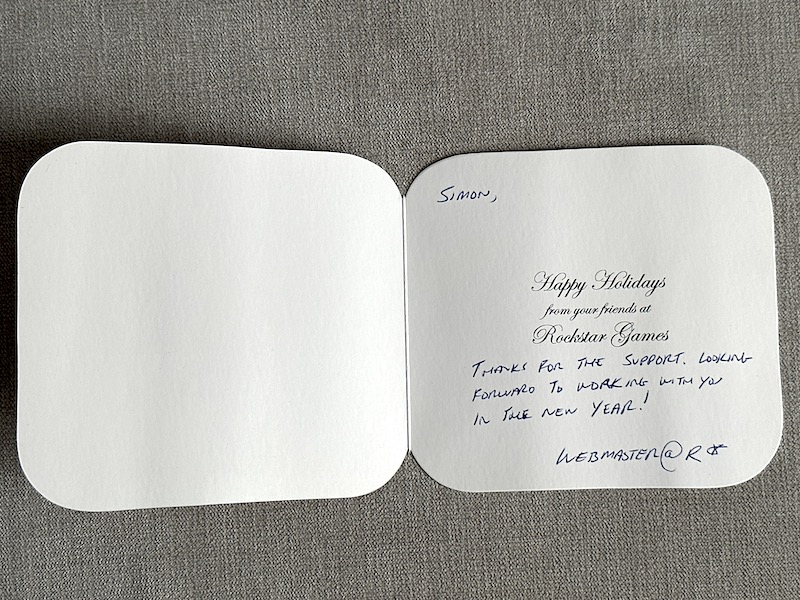 SIMON,
Happy Holidays
from your friends at
Rockstar Games
THANKS FOR THE SUPPORT. LOOKING
FORWARD TO WORKING WITH YOU
IN THE NEW YEAR!
WEBMASTER@R*